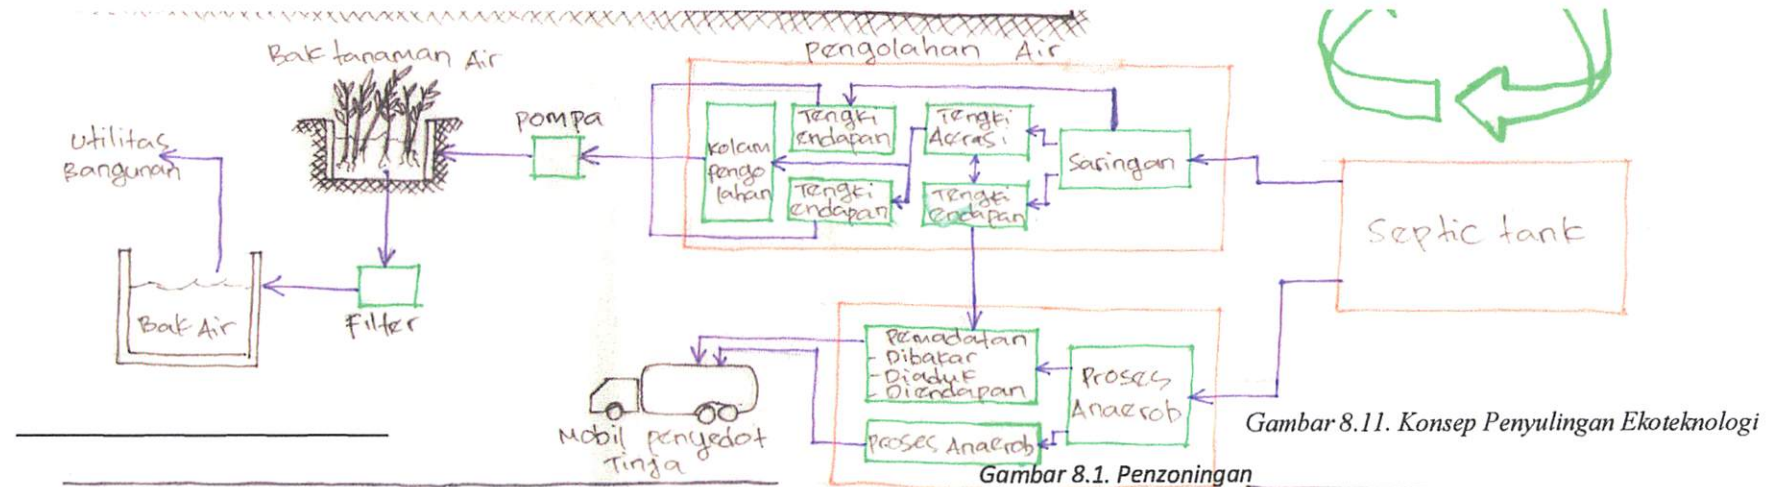 Bak tanaman Air
Pengolahan Air
Utilitas
Bangunan
pompa
Kolam
pengo
lahan
Tengki
endapan
Tengki
endapan
Tengki
Aerasi
Tengki
endapan
Saringan
Septic tank
Bak Air
Filter
Pemadatan
- Dibakar
- Diaduk
- Diendapan
Proses
Anaerob
Proses Anaerob
Mobil penyedot
Tinja
Gambar 8.11. Konsep Penyulingan Ekoteknologi
Gambar 8.1. Penzoningan